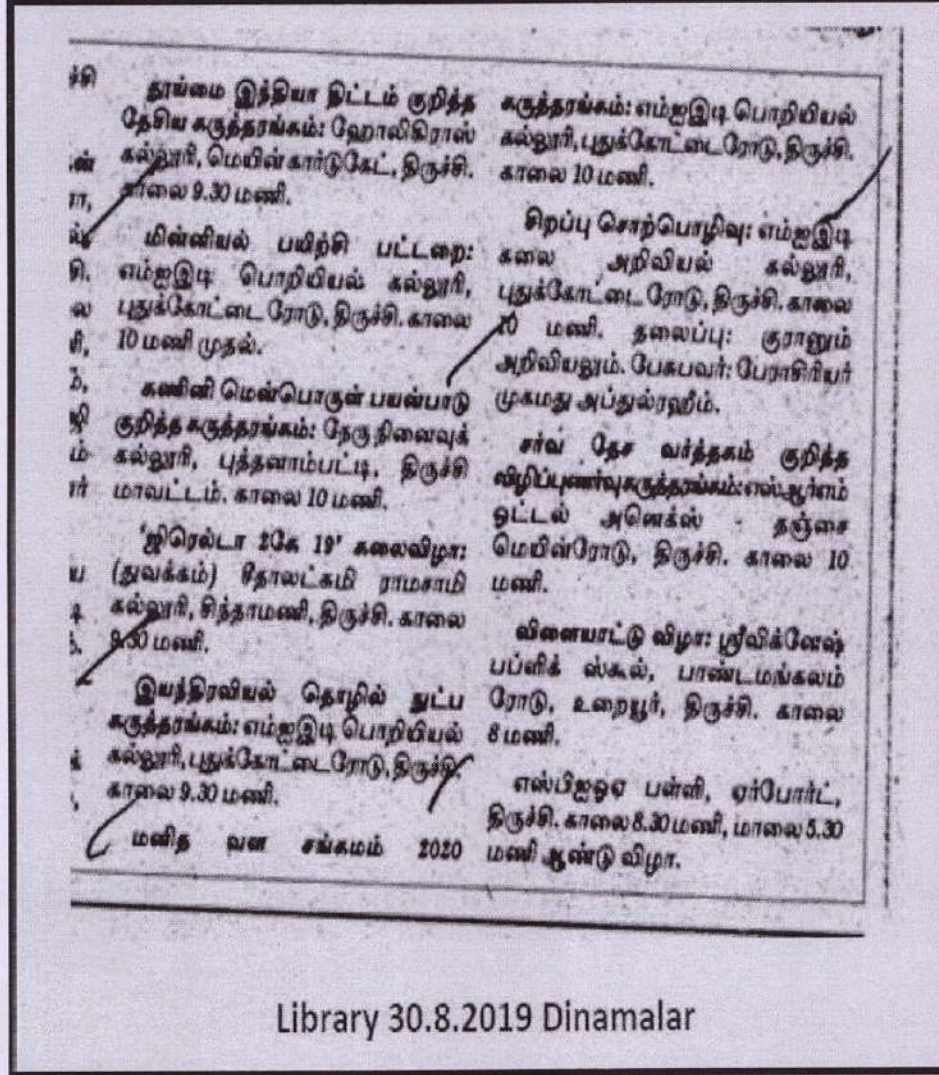 தூய்மை இந்தியா திட்டம் குறித்த
தேசிய கருத்தரங்கம்: ஹோலிகிராஸ்
கல்லூரி, மெயின்கார்டுகேட், திருச்சி.
காலை 9.30 மணி.
மின்னியல் பயிற்சி பட்டறை:
எம்ஐஇடி பொறியியல் கல்லூரி,
புதுக்கோட்டை ரோடு, திருச்சி. காலை
10 மணி முதல்.
கணினி மென்பொருள் பயன்பாடு
குறித்த கருத்தரங்கம்: நேரு நினைவுக்
கல்லூரி, புத்தனாம்பட்டி, திருச்சி
மாவட்டம். காலை 10 மணி.
'ஜிரெல்டா 2கே 19' கலைவிழா:
(துவக்கம்) சீதாலட்சுமி ராமசாமி
கல்லூரி, சிந்தாமணி, திருச்சி. காலை
9.30 மணி.
இயந்திரவியல் தொழில் நுட்ப
கருத்தரங்கம்: எம்ஐஇடி பொறியியல்
கல்லூரி, புதுக்கோட்டை ரோடு, திருச்சி.
காலை 9.30 மணி.
மனித வள சங்கமம் 2020
கருத்தரங்கம்: எம்ஐஇடி பொறியியல்
கல்லூரி, புதுக்கோட்டை ரோடு, திருச்சி.
காலை 10 மணி.
சிறப்பு சொற்பொழிவு: எம்ஐஇடி
கலை அறிவியல் கல்லூரி,
புதுக்கோட்டை ரோடு, திருச்சி. காலை
10 மணி. தலைப்பு: குரானும்
அறிவியலும். பேசுபவர்: பேராசிரியர்
முகமது அப்துல்ரஹீம்.
சர்வ தேச வர்த்தகம் குறித்த
விழிப்புணர்வு கருத்தரங்கம்: எஸ்ஆர்எம்
ஓட்டல் அனெக்ஸ் - தஞ்சை
மெயின்ரோடு, திருச்சி. காலை 10
மணி.
விளையாட்டு விழா: ஸ்ரீவிக்னேஷ்
பப்ளிக் ஸ்கூல், பாண்டமங்கலம்
ரோடு, உறையூர், திருச்சி. காலை
8 மணி.
எஸ்பிஐஓஏ பள்ளி, ஏர்போர்ட்,
திருச்சி. காலை 8.30 மணி, மாலை 5.30
மணி ஆண்டு விழா.
Library 30.8.2019 Dinamalar